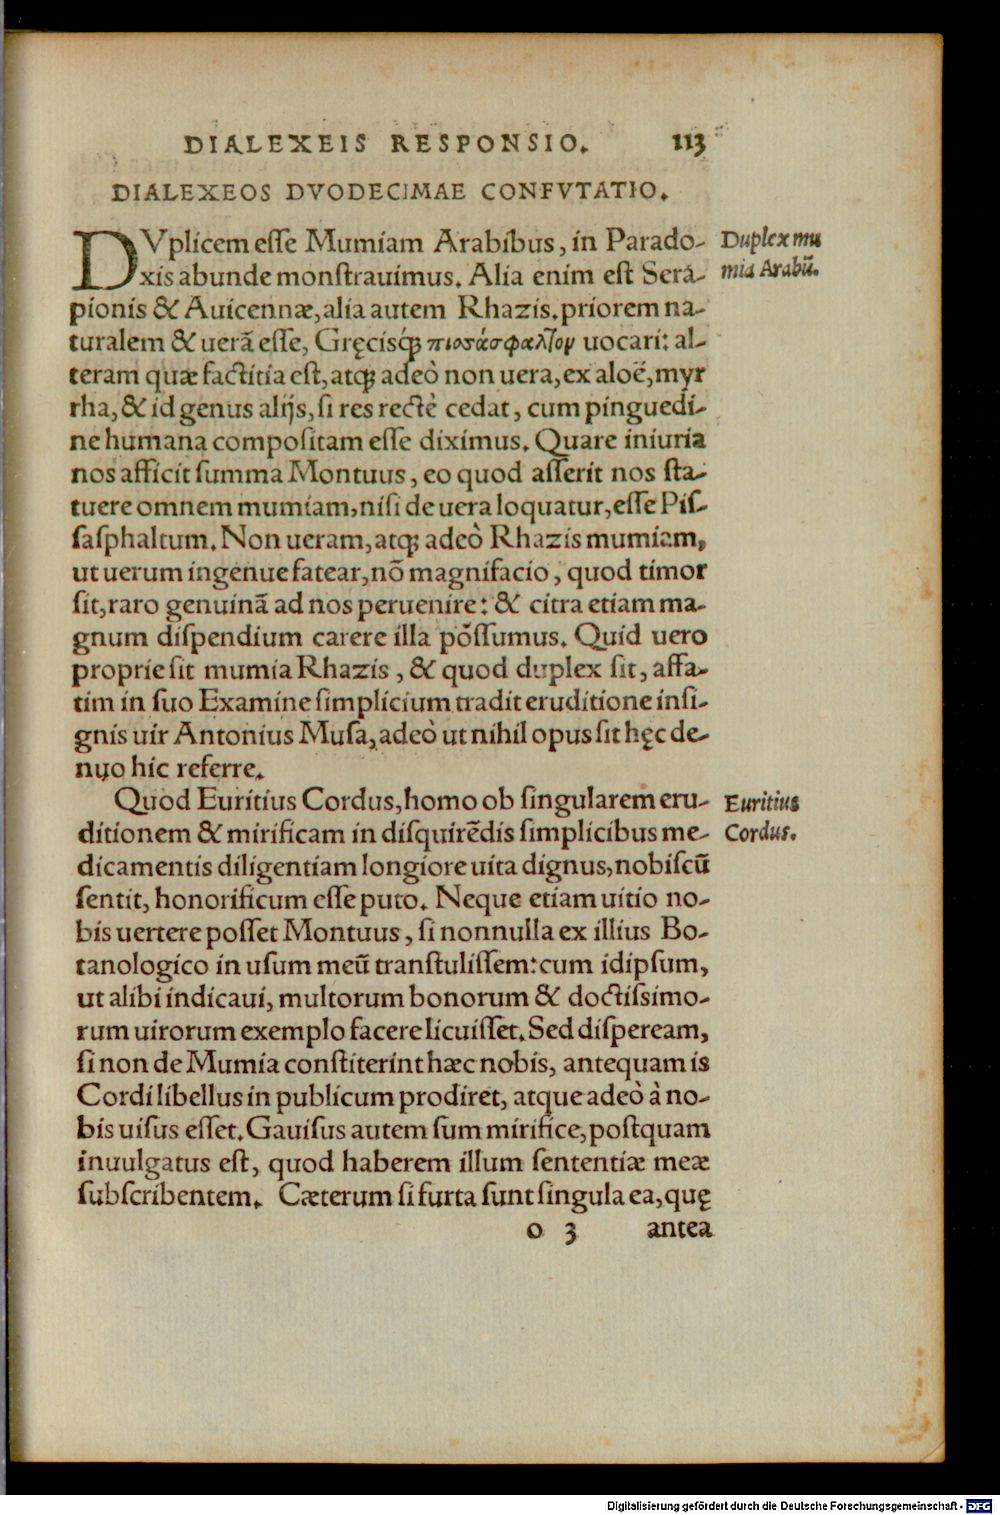 DIALEXEIS RESPONSIO. 113
DIALEXEOS DVODECIMAE CONFVTATIO.
DVplicem esse Mumiam Arabibus, in Parado-
xis abunde monstrauimus. Alia enim est Sera-
pionis & Auicennæ, alia autem Rhazis. priorem na-
turalem & uerã esse, Gręcisq́ꝫ πιοσάσφαλτου uocari: al-
teram quæ factitia est, atqꝫ adeò non uera, ex aloë, myr
rha, & id genus alijs, si res rectè cedat, cum pinguedi-
ne humana compositam esse diximus. Quare iniuria
nos afficit summa Montuus, eo quod asserit nos sta-
tuere omnem mumiam, nisi de uera loquatur, esse Pis-
sasphaltum. Non ueram, atqꝫ adeò Rhazis mumiam,
ut uerum ingenue fatear, nõ magnifacio, quod timor
sit, raro genuinã ad nos peruenire: & citra etiam ma-
gnum dispendium carere illa põssumus. Quid uero
proprie sit mumia Rhazis, & quod duplex sit, affa-
tim in suo Examine simplicium tradit eruditione insi-
gnis uir Antonius Musa, adeò ut nihil opus sit hęc de-
nuo hic referre.
Quod Euritius Cordus, homo ob singularem eru-
ditionem & mirificam in disquirẽdis simplicibus me-
dicamentis diligentiam longiore uita dignus, nobiscũ
sentit, honorificum esse puto. Neque etiam uitio no-
bis uertere posset Montuus, si nonnulla ex illius Bo-
tanologico in usum meũ transtulissem: cum idipsum,
ut alibi indicaui, multorum bonorum & doctissimo-
rum uirorum exemplo facere licuisset. Sed dispeream,
si non de Mumia constiterint hæc nobis, antequam is
Cordi libellus in publicum prodiret, atque adeò à no-
bis uisus esset. Gauisus autem sum mirifice, postquam
inuulgatus est, quod haberem illum sententiæ meæ
subscribentem. Cæterum si furta sunt singula ea, quę
o 3 antea
Duplex mu
mia Arabũ.
Euritius
Cordus.
Digitalisierung gefördert durch die Deutsche Forschungsgemeinschaft - DFG